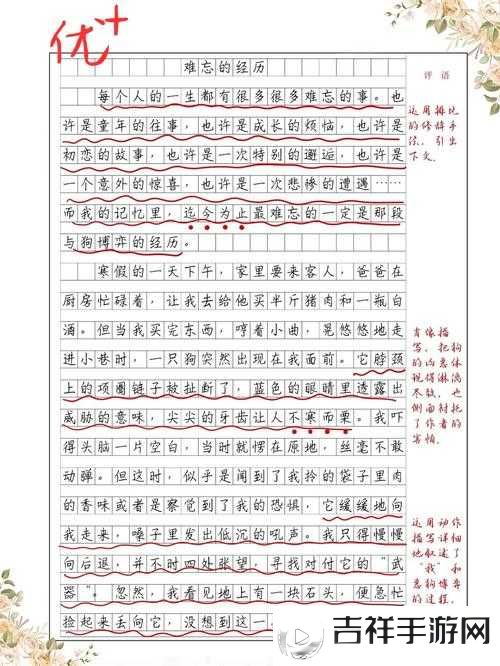 优+
难忘的经历
每个人的一生都有很多很多难忘的事。也
许是童年的往事，也许是成长的烦恼，也许是
初恋的故事，也许是一次特别的邂逅，也许是
一个意外的惊喜，也许是一次悲惨的遭遇……
而我的记忆里，迄今为止最难忘的一定是那段
与狗博弈的经历。
寒假的一天下午，家里要来客人，爸爸在
厨房忙碌着，让我去给他买半斤猪肉和一瓶白
酒。但当我买完东西，哼着小曲，晃悠悠地走
进小巷时，一只狗突然出现在我面前。它脖颈
上的项圈链子被扯断了，蓝色的眼睛里透露出
威胁的意味，尖尖的牙齿让人不寒而栗。我吓
得头脑一片空白，当时就愣在原地，丝毫不敢
动弹。但这时，似乎是闻到了我拎的袋子里肉
的香味或者是察觉到了我的恐惧，它缓缓地向
我走来，嗓子里发出低沉的吼声。我只得慢慢
向后退，并不时四处张望，寻找对付它的“武
器”。忽然，我看见地上有一块石头，便急忙
捡起来丢向它，没想到这一
评语
运用排比
的修辞手
法，引出
下文。
肖像描
写，把狗
的凶恶体
现得淋漓
尽致，也
侧面衬托
了作者的
害怕。
运用动作
描写详细
地叙述了
“我”和
恶狗博弈
的过程。
吉祥手游网